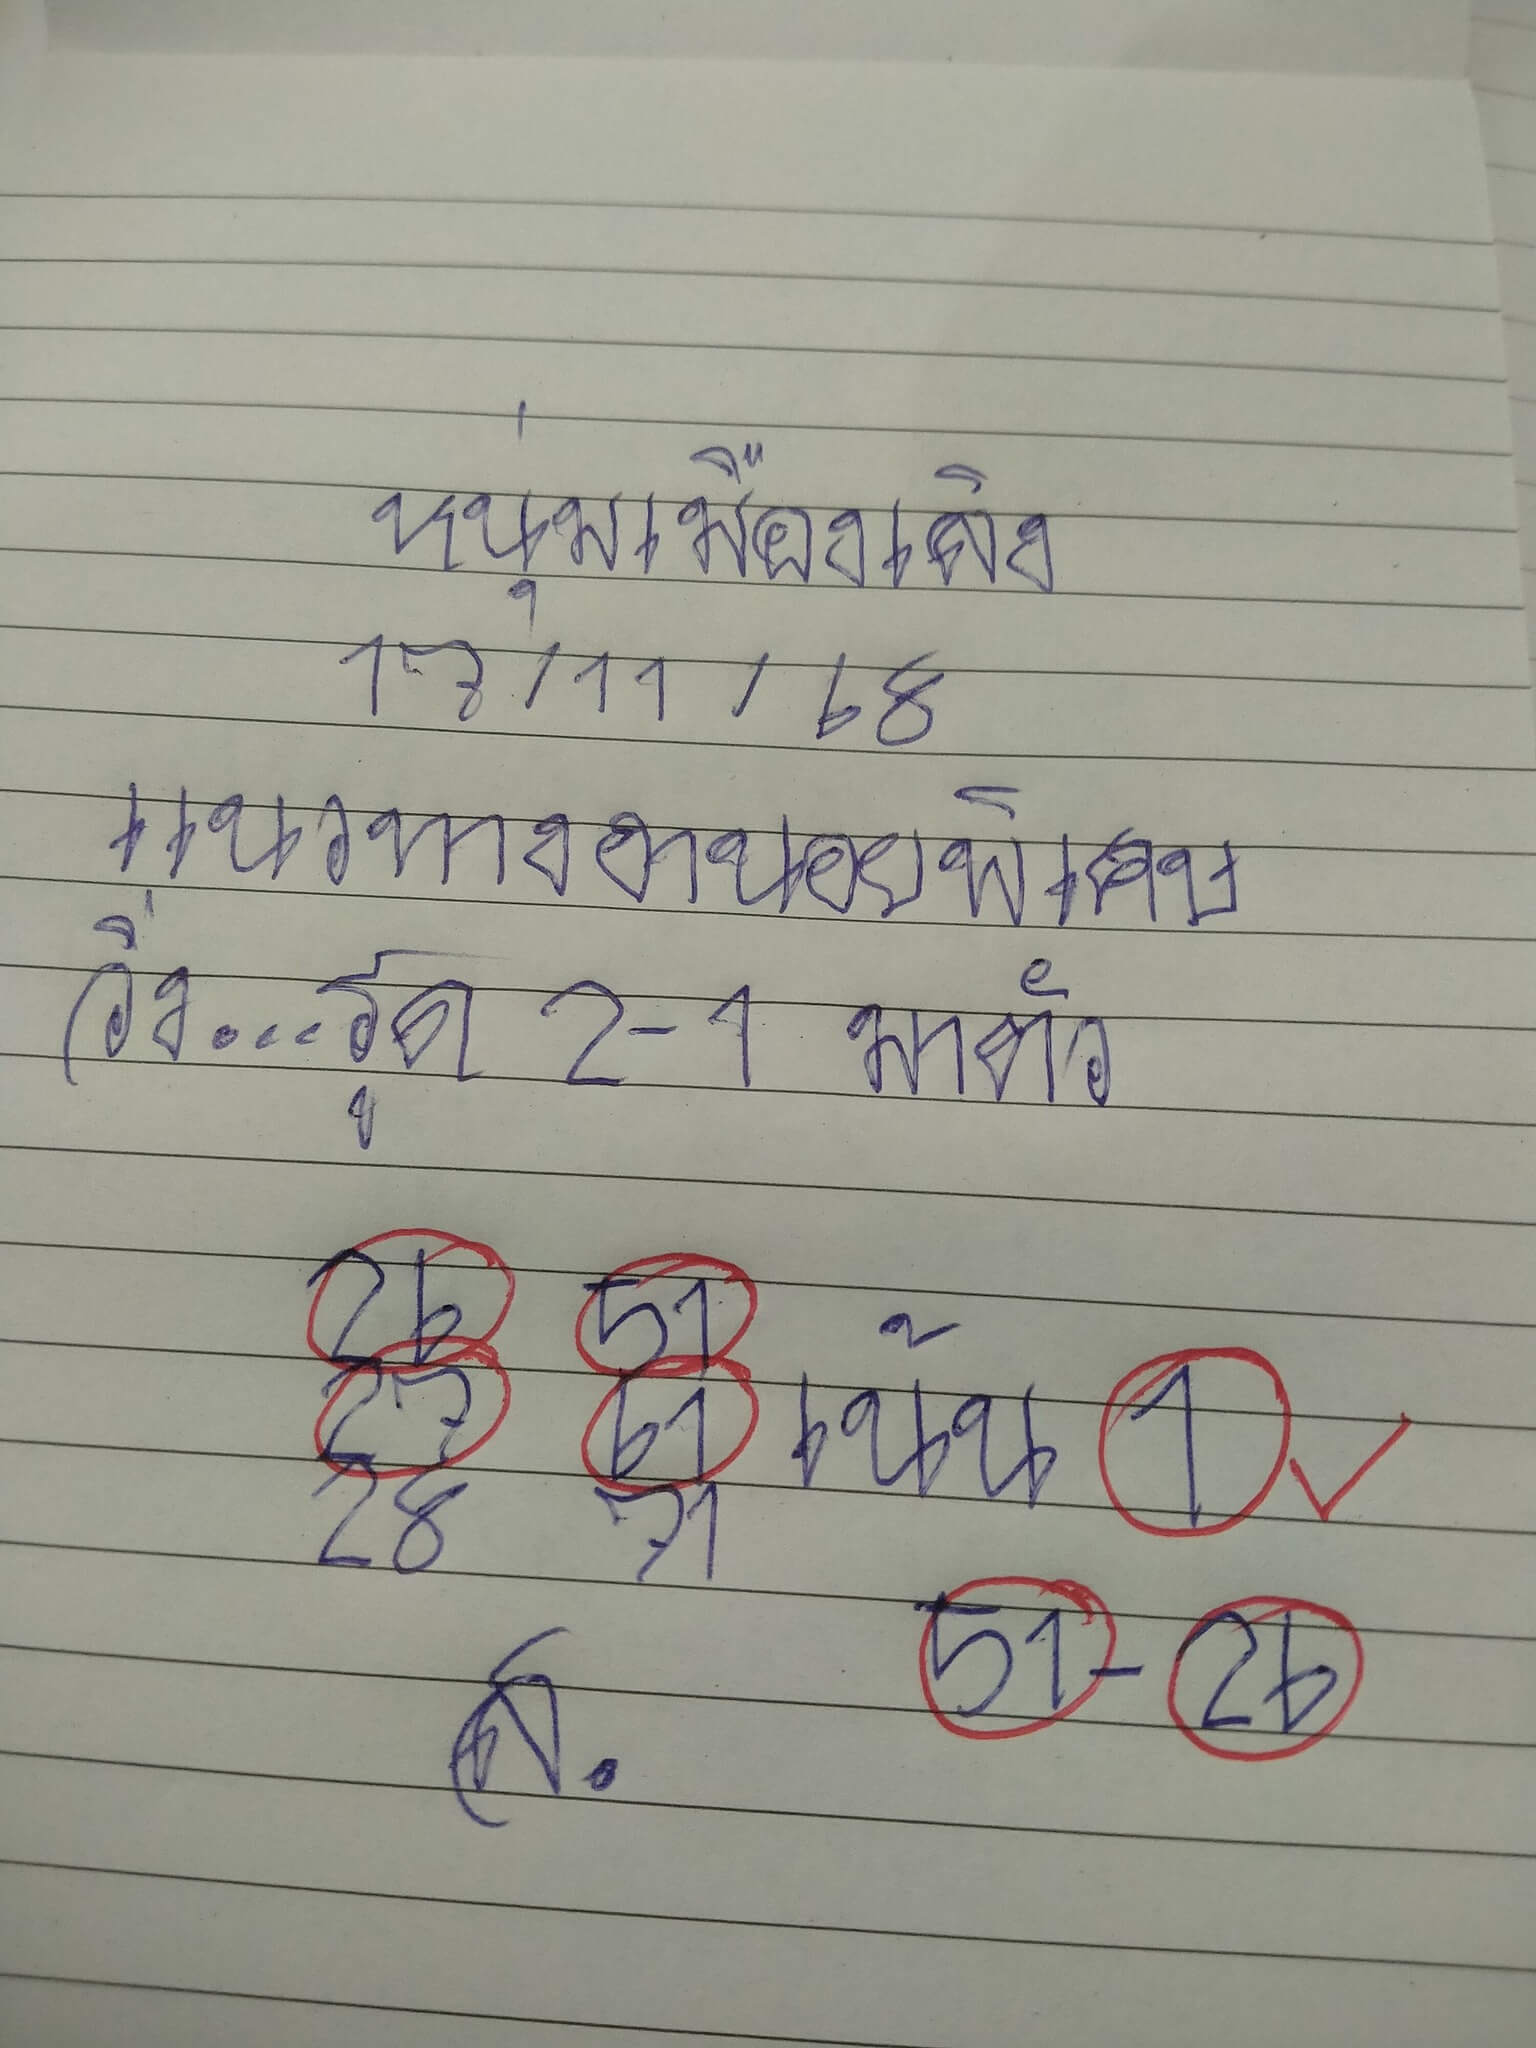 หนุ่มเมืองเลิง
17/11/68
แนวทางฮานอยพิเศษ
วิ่ง...รูด 2-1 มาตัว
26 51
27 61 เน้น 1
28 71
51-26